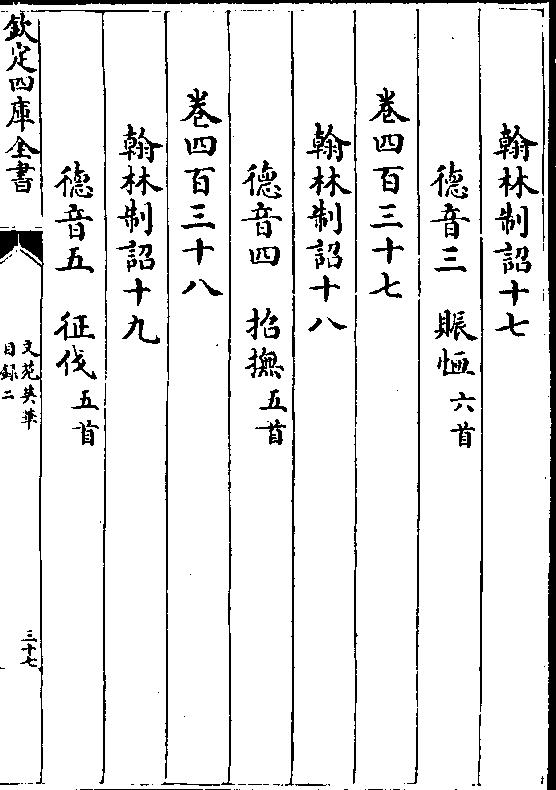 翰林制詔十七
德音三　賑恤六首
卷四百三十七
翰林制詔十八
德音四　招撫五首
卷四百三十八
翰林制詔十九
德音五　征伐五首
欽定四庫全書
文苑英華
目録二
三十七